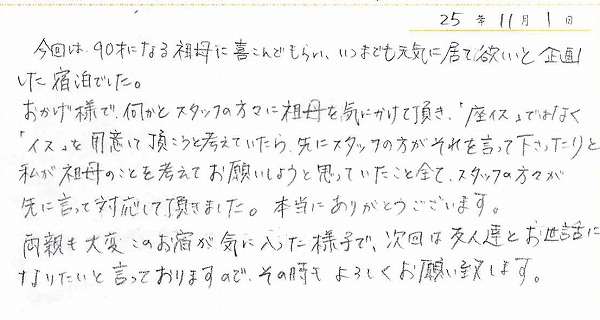 25年11月1日
今回は、90才になる祖母に喜こんでもらい、いつまでも元気に居て欲いいと企画
した宿泊でした。
おかげ様で、何かとスタッフの方々に祖母を気にかけて頂き、「座イス」ではなく
「イス」を用意して頂こうと考えていたら、先にスタッフの方がそれを言って下さったりと
私が祖母のことを考えてお願いしようと思っていたこと全て、スタッフの方々が
先に言って対応して頂きました。本当にありがとうございます。
両親も大変このお宿が気に入った様子で、次回は友人達とお世話に
なりたいと言っておりますので、その時も よろしくお願い致します。